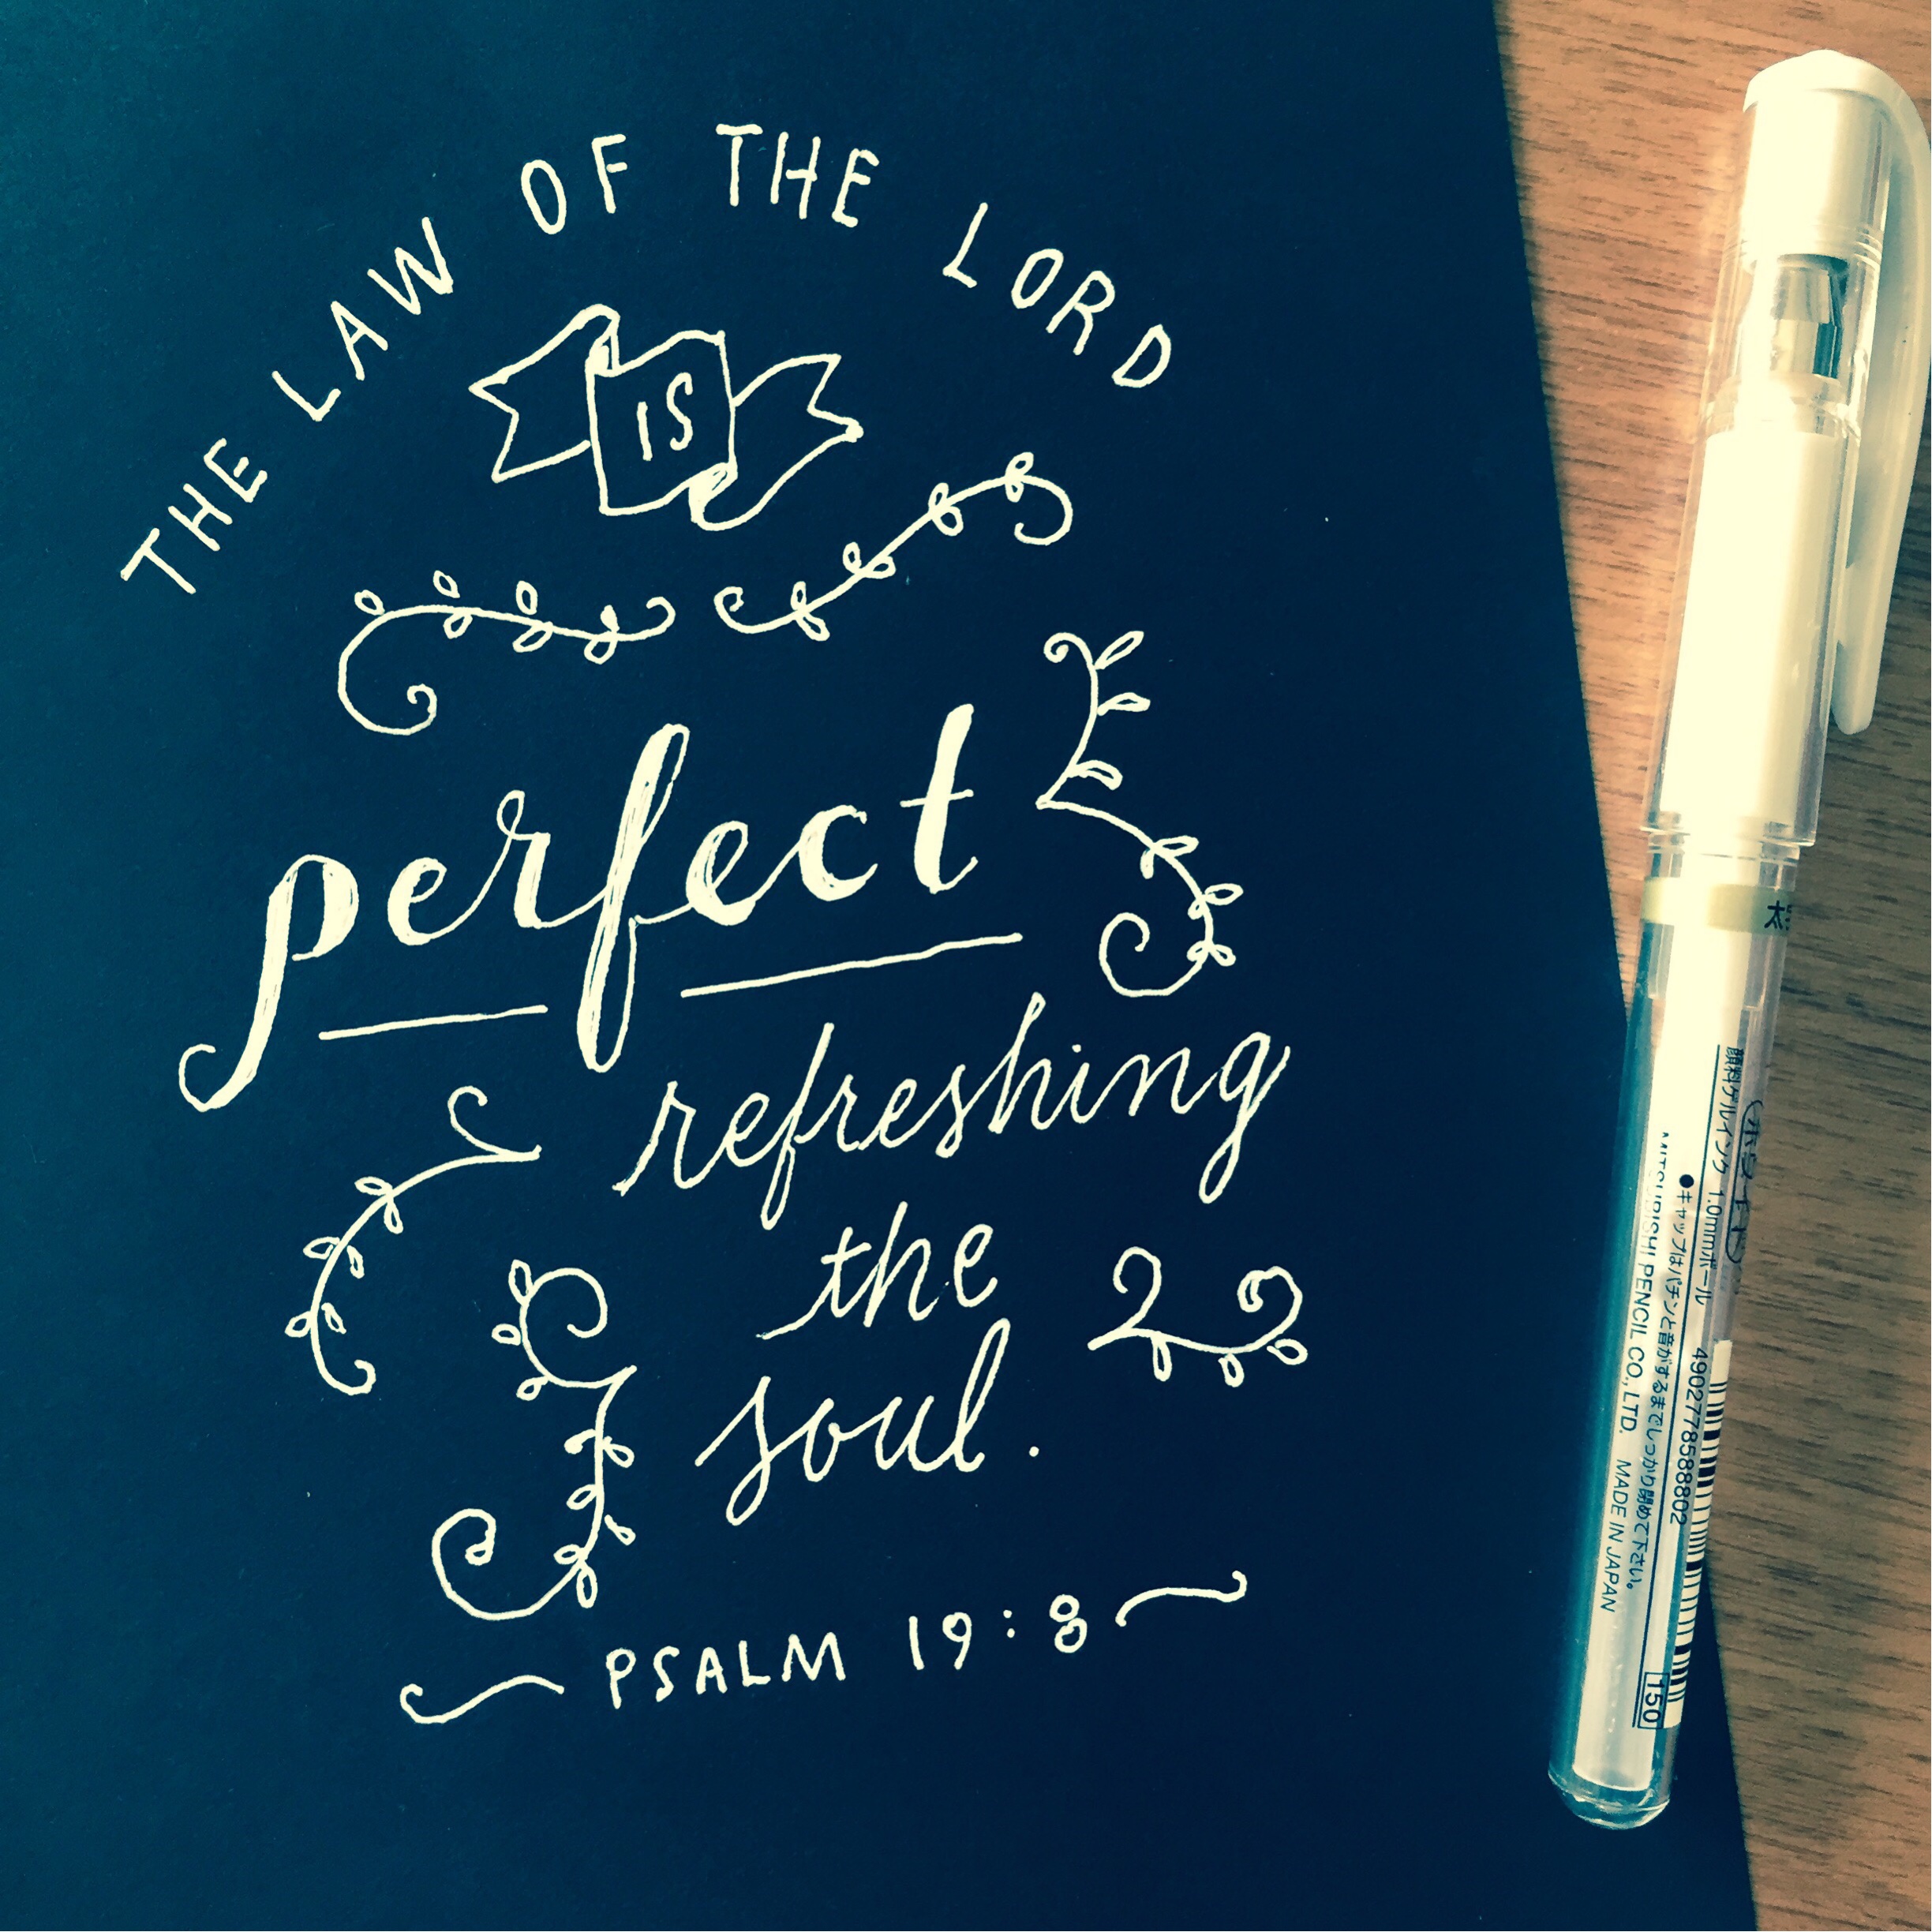 THE LAW OF THE LORD
IS
perfect
refreshing
the
soul.
PSALM 19:8
顔料ゲルインク 1.0mmボール
4902778588802
●キャップはパチンと音がするまでしっかり閉めて下さい。
MITSUBISHI PENCIL CO., LTD. MADE IN JAPAN
150